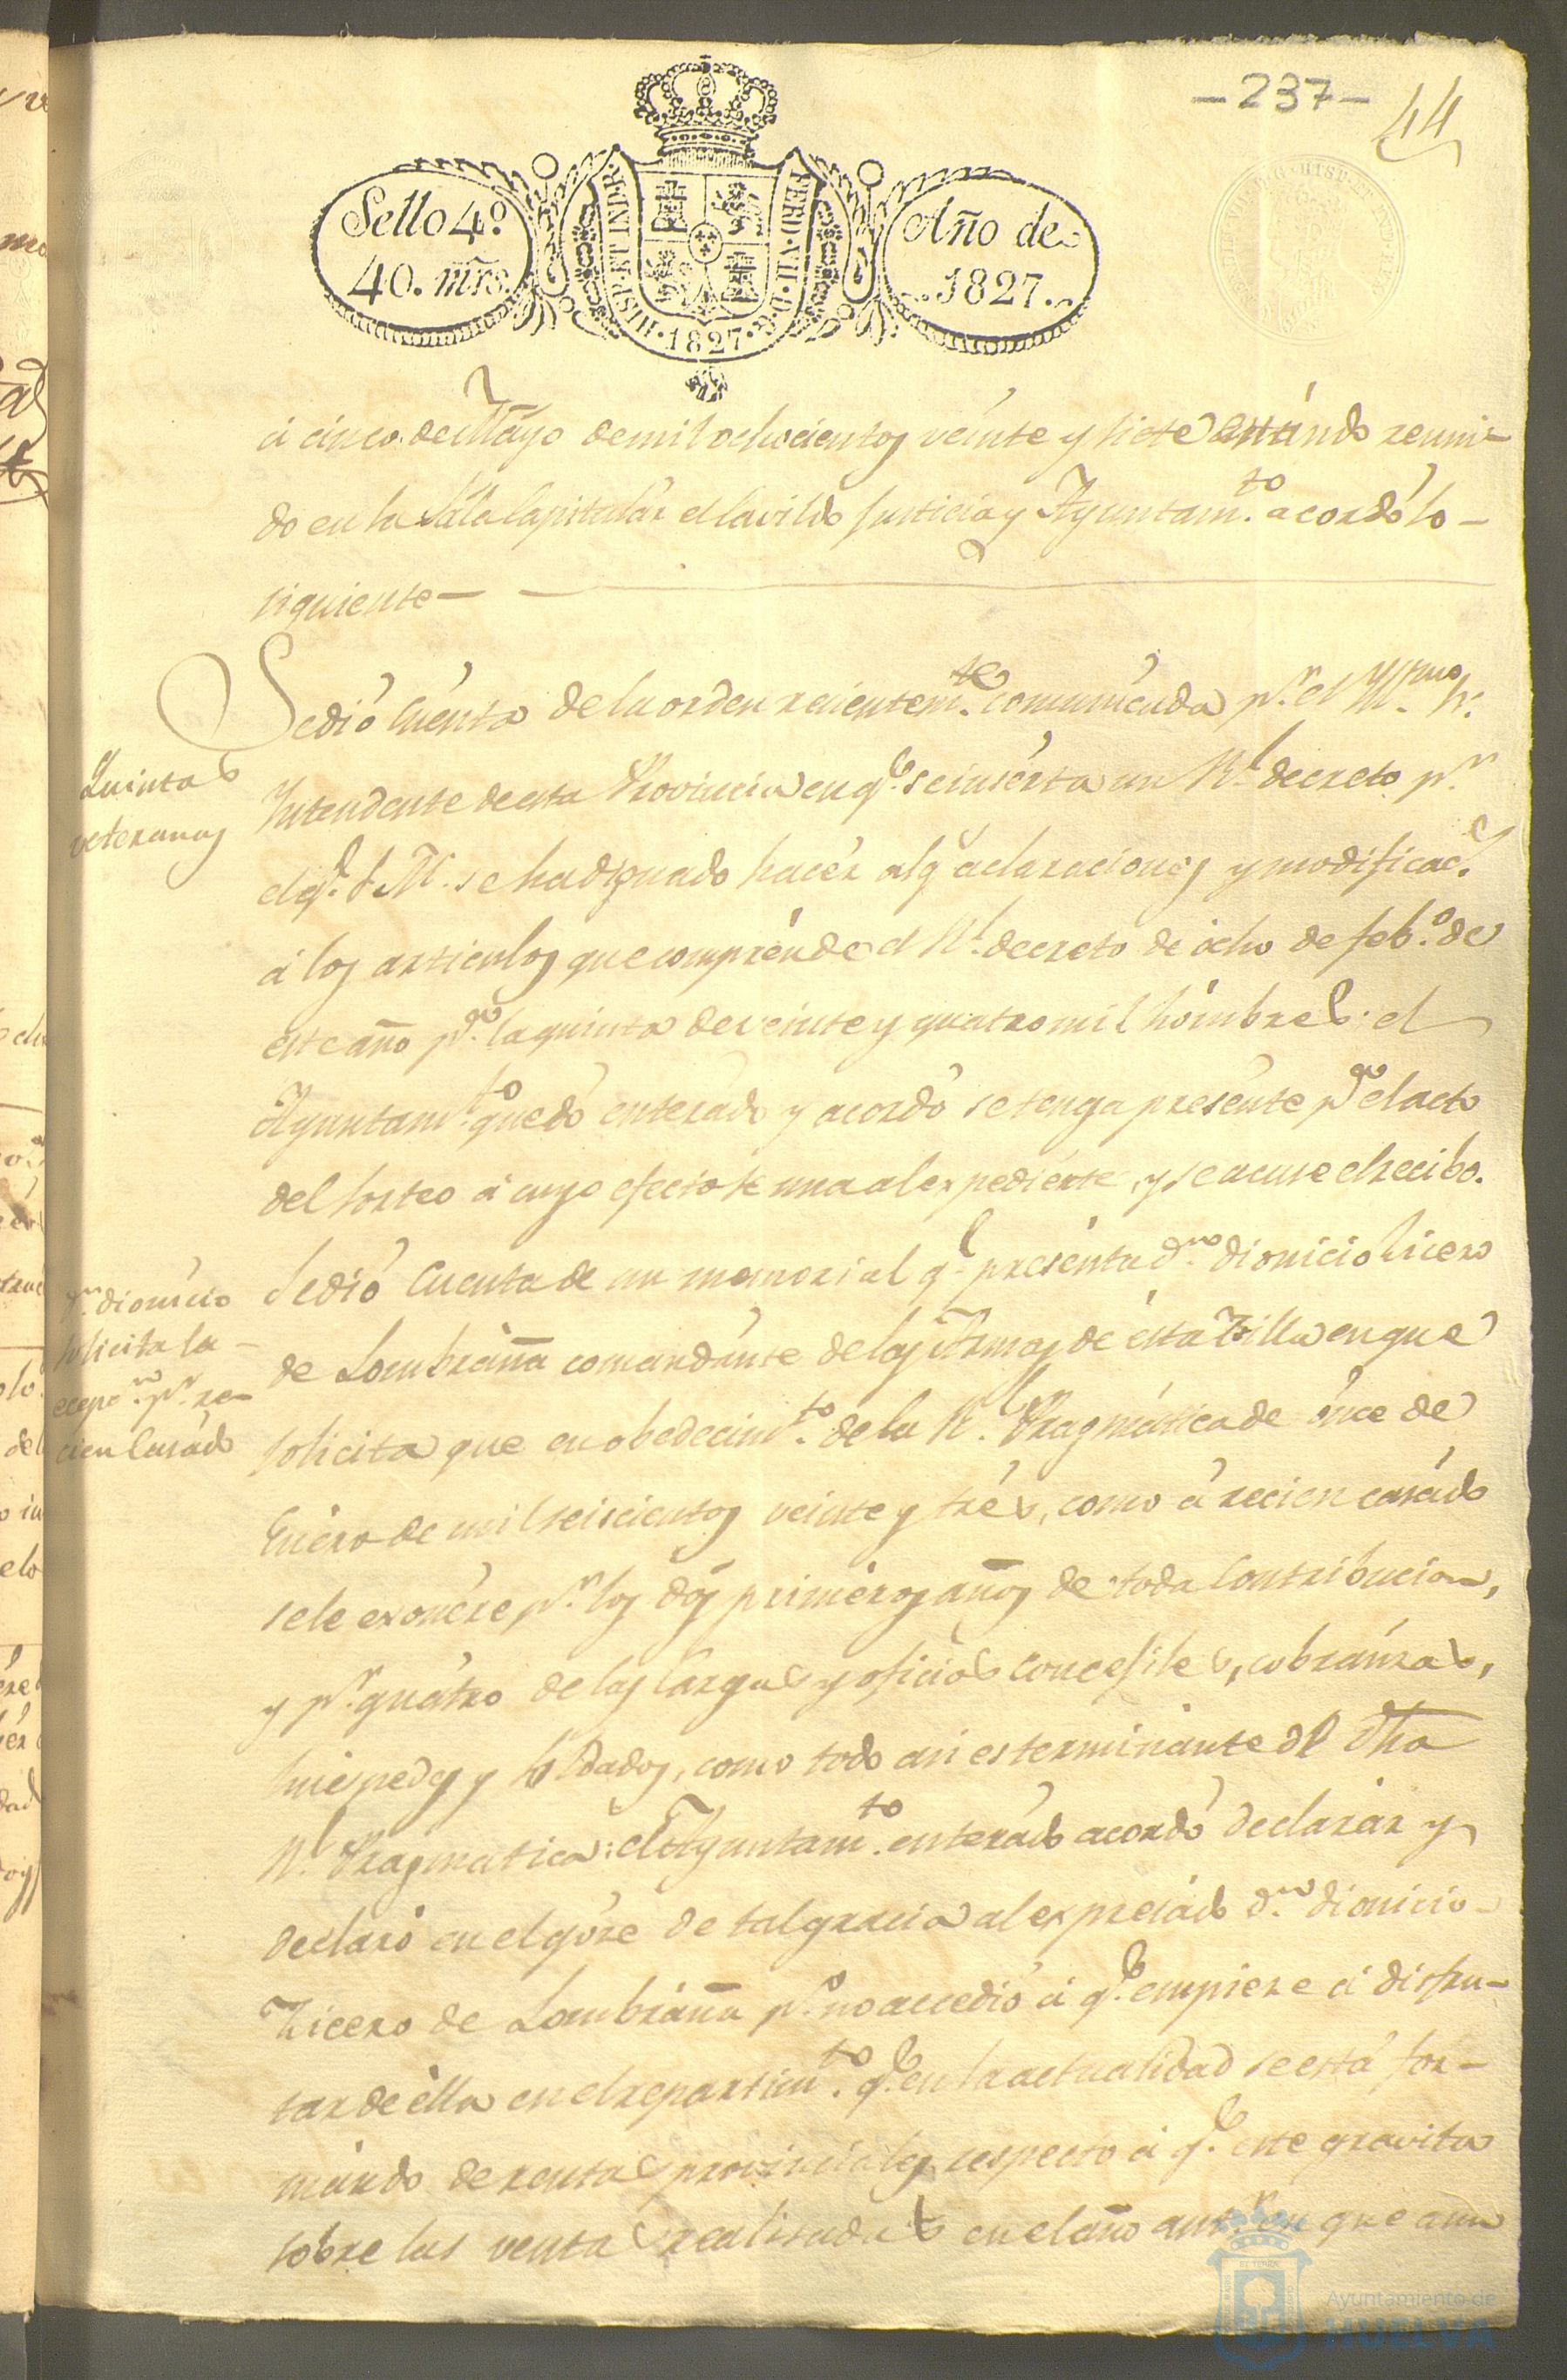 -237-
44
Sello 4º.
40. mrs.
HISP. ET IND. R.
FERD. VII. D. G.
1827
Año de
1827.
á cinco de Mayo de mil ochocientos veinte y siete estándo reuni-
do en la Sala Capitulár el Cavildo Justicia y Ayuntam.to acordó lo -
siguiente -
Se dió Cuenta de la orden recientem.te comunicada p.r el Sr.
Quintas
veteranas
Intendente de esta Provincia en q.e se insérta un Rl. decreto p.r
el q.e S. M. se ha dignado hacér alg.s aclaraciones y modificac.s
á los articulos que comprénde el Rl. decreto de ócho de feb.o de
este año p.a la quinta de veinte y quatro mil hómbres: el
Ayuntam.to quedó enterado y acordó se tenga presénte p.a el acto
del sorteo á cuyo efecto se una al expediénte, y se acuse el recibo.
Se dió Cuenta de un memorial q.e presénta d.n dionicio Licero
D.n dionicio
solicita la -
ecepc.n p.r re-
cien Casádo
de Lombráña comandánte de las Armas de ésta Villa en que
solicita que en obedecim.to de la Rl. Pragmática de ónce de
Enéro de mil seiscientos veinte y trés, como á recien casádo
se le exonére p.r los dos priméros años de toda Contribucion,
y p.r quátro de las Cargas y oficios Concegiles, cobránzas,
huéspedes y Soldados, como todo asi es terminánte de dha
Rl. Pragmatica: el Ayuntam.to enterádo acordó declarár y
declaró en el góze de tal gracia al expresádo d.n dionicio -
Licero de Lombráña p.o no accedió á q.e empieze á disfru-
tar de élla en el repartim.to q.e en la actualidad se está for-
mándo de rentas provinciales respecto á q.e este gravita
sobre las ventas realisadas en el año ant.r en que aun
Ayuntamiento de
HUELVA